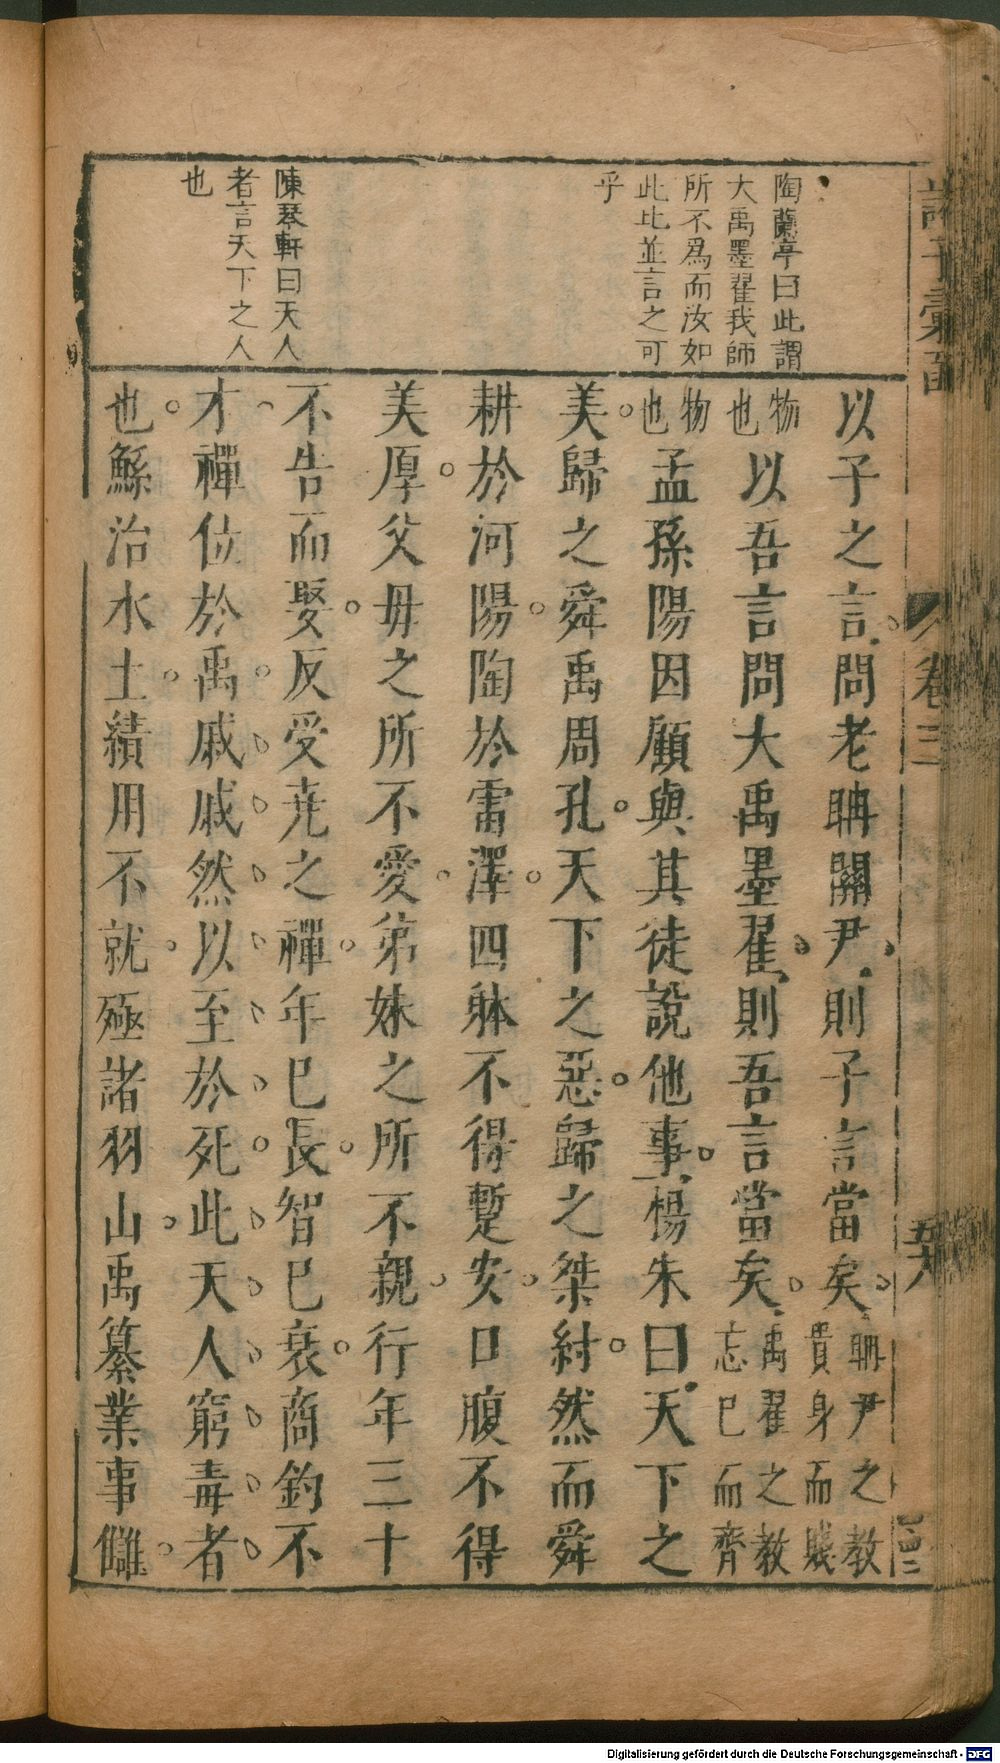 陶蘭亭曰此謂
大禹墨翟我師
所不爲而汝如
此比並言之可
乎
陳琴軒曰天人
者言天下之人
也
以子之言問老聃關尹則子言當矣聃尹之教
貴身而賤
物
也以吾言問大禹墨翟則吾言當矣禹翟之教
忘已而齊
物
也孟孫陽因顧與其徒說他事楊朱曰天下之
美歸之舜禹周孔天下之惡歸之桀紂然而舜
耕於河陽陶於雷澤四躰不得蹔安口腹不得
美厚父母之所不愛弟妹之所不親行年三十
不告而娶反受尭之禪年已長智已衰商鈞不
才禪位於禹戚戚然以至於死此天人窮毒者
也鯀治水土績用不就殛諸羽山禹纂業事讎
卷三
Digitalisierung gefördert durch die Deutsche Forschungsgemeinschaft - DFG